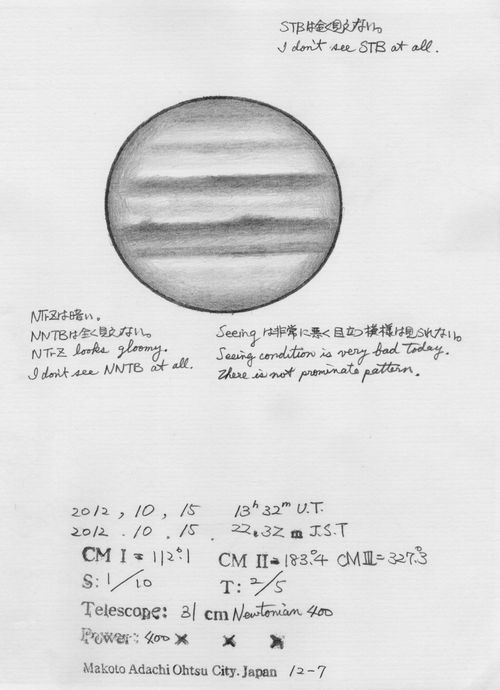 STBは全く見えない。
I don't see STB at all.
NTrZは暗い。
NNTBは全く見えない。
NTrZ looks gloomy.
I don't see NNTB at all.
Seeing は非常に悪く目立つ模様は見られない。
Seeing condition is very bad today.
There is not prominate pattern.
2012, 10, 15 13h 32m U.T.
2012.10.15. 22h 32 m J.S.T
CM I = 112.°1 CM II = 183.°4 CM III = 327.°3
S: 1/10 T: 2/5
Telescope: 31 cm Newtonian 400
Power: 400 × × ×
Makoto Adachi Ohtsu City. Japan 12-7